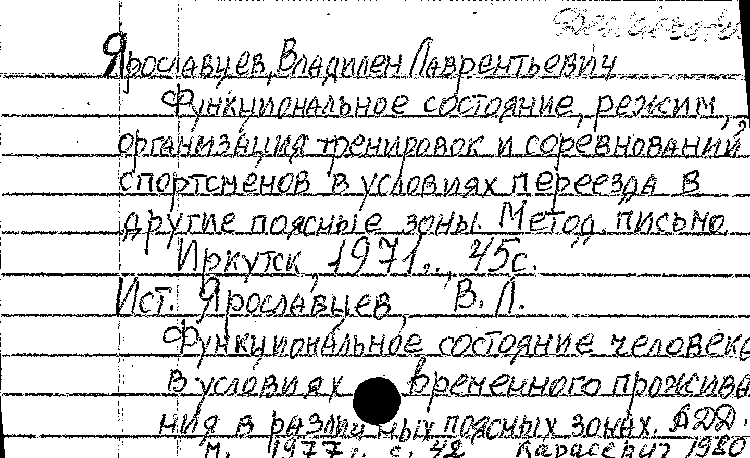 Ярославцев, Владилен Лаврентьевич
Функциональное состояние, режим,
организация тренировок и соревнований
спортсменов в условиях переезда в
другие поясные зоны. Метод. письмо
Иркутск, 1971., 45с.
Ист. Ярославцев, В. Л.
Функциональное состояние человека
в условиях временного прожива
ния в различных поясных зонах. АДД.
М. 1977. с. 42 Карасевич 1980